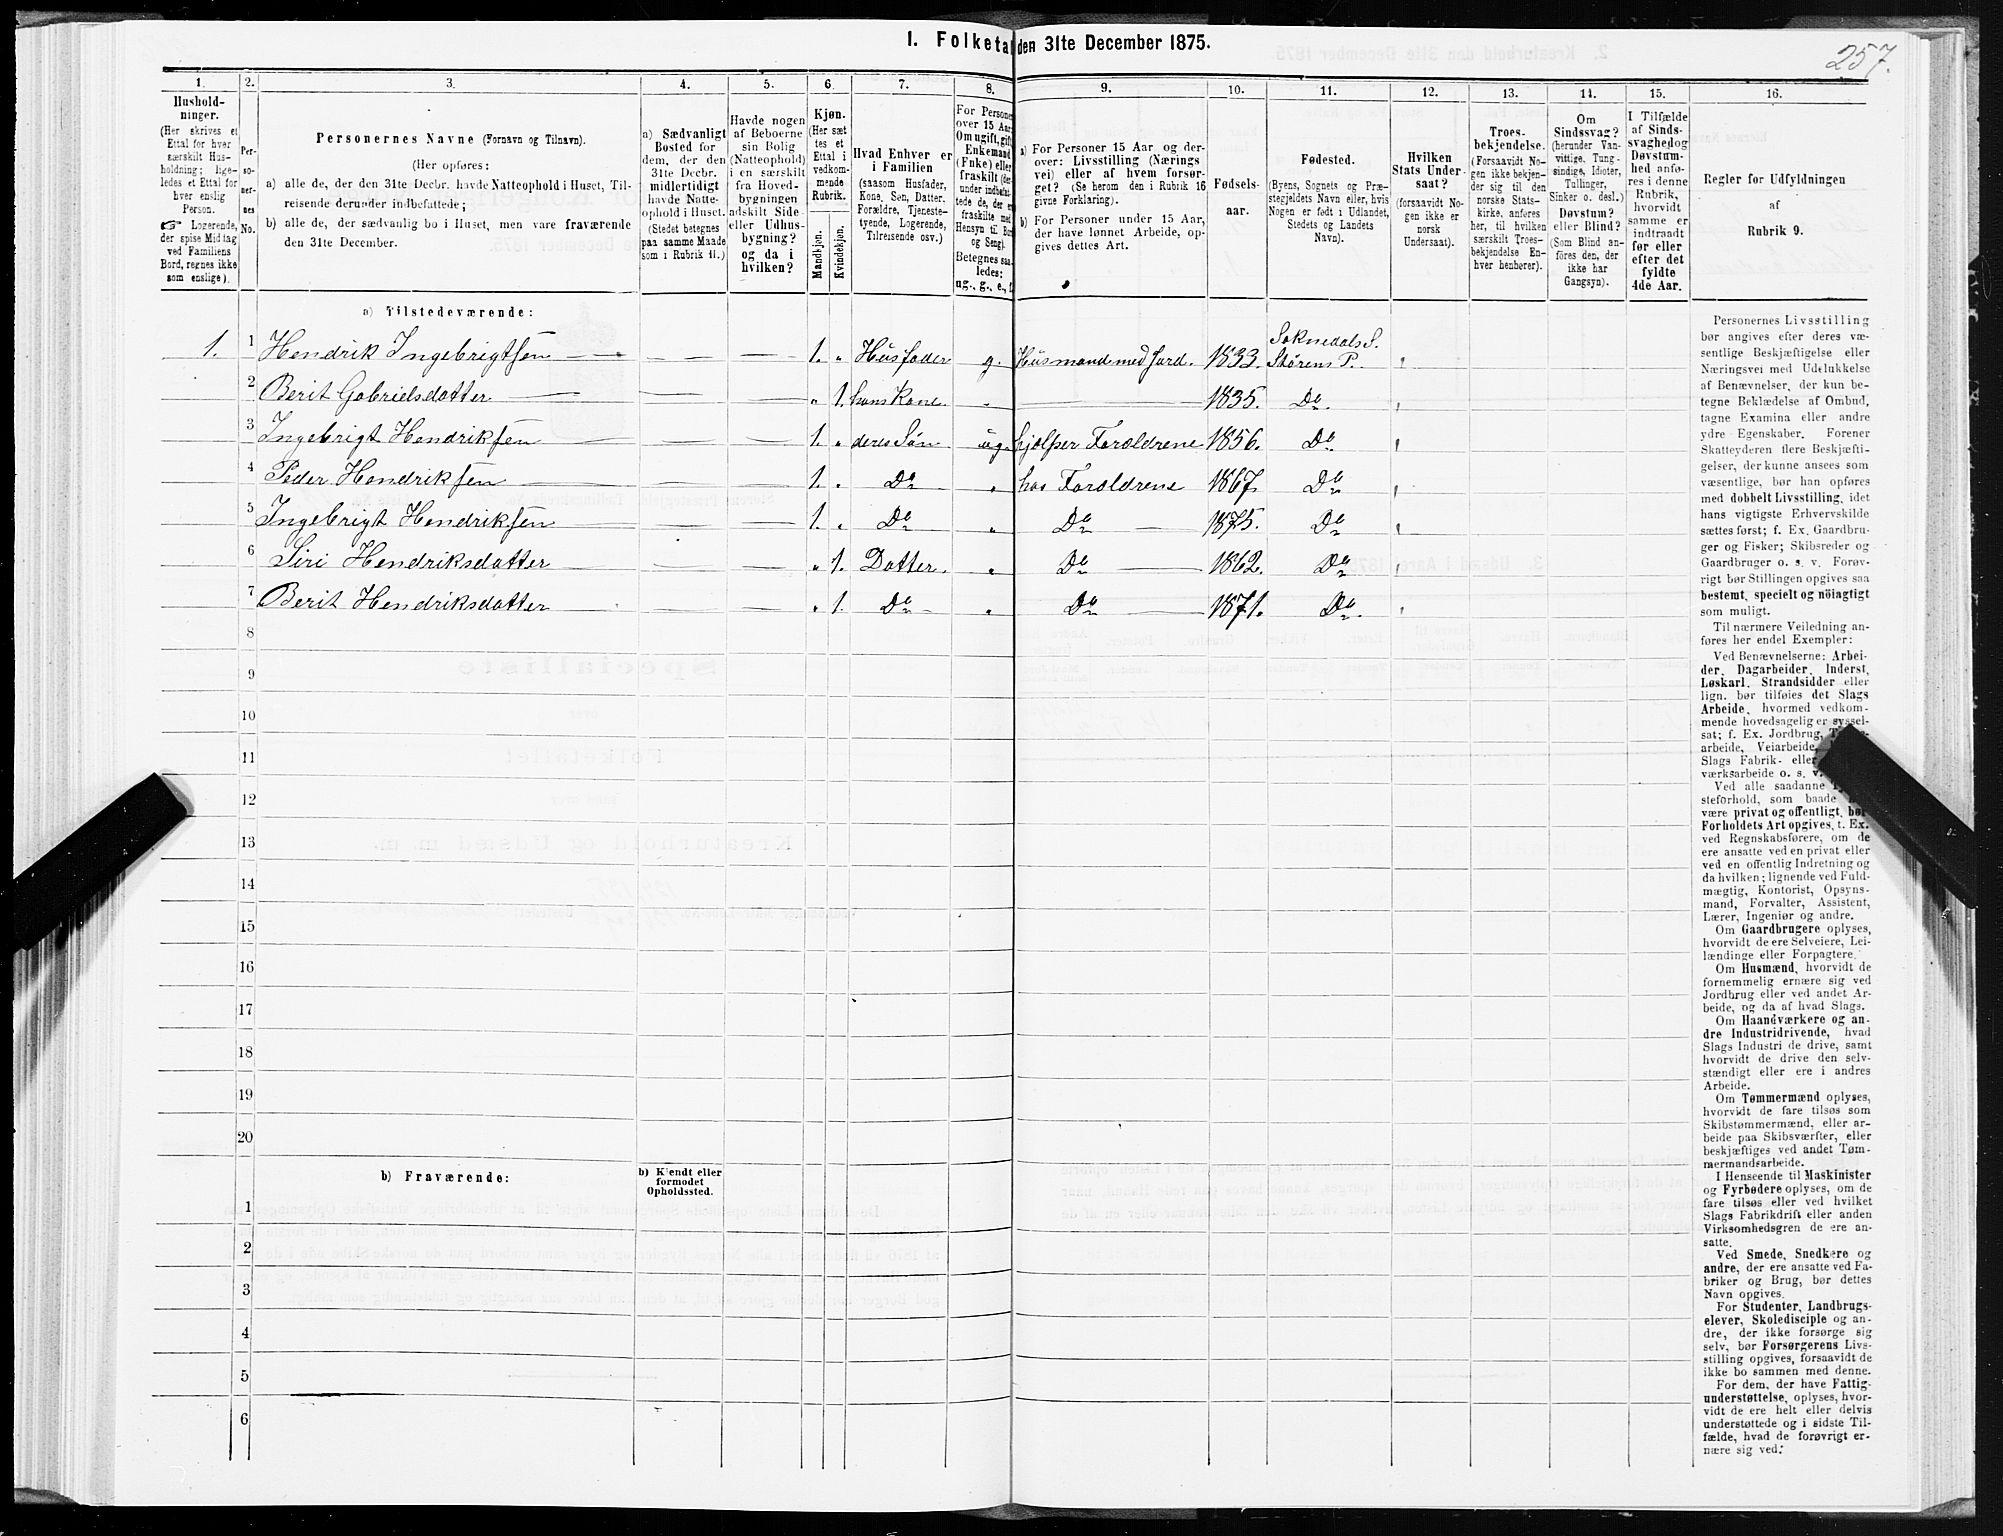 1. Folketal den 31te December 1875.
257.
1. 2. 3. 4. 5. 6. 7. 8. 9. 10. 11. 12. 13. 14. 15. 16.
Hushold-
ninger.
(Her skrives et
Ettal for hver
særskilt Hus-
holdning; lige-
ledes et Ettal for
hver enslig
Person.
☞ Logerende,
der spise Middag
ved Familiens
Bord, regnes ikke
som enslige).
Per-
so-
ner-
nes
No.
Personernes Navne (Fornavn og Tilnavn).
(Her opføres:
a) alle de, der den 31te Decbr. havde Natteophold i Huset, Til-
reisende derunder indbefattede;
b) alle de, der sædvanlig bo i Huset, men vare fraværende
den 31te December.
a) Sædvanligt
Bosted for
dem, der den
31te Decbr.
midlertidigt
havde Natte-
ophold i Huset.
(Stedet betegnes
paa samme Maade
som i Rubrik 11.)
Havde nogen
af Beboerne
sin Bolig
(Natteophold)
i en særskilt
fra Hoved-
bygningen
adskilt Side-
eller Udhus-
bygning?
og da i
hvilken?
Kjøn.
(Her sæt-
tes et
Ettal i
vedkom-
mende
Rubrik.
Mandkjøn.
Kvindekjøn.
Hvad Enhver er
i Familien
(saasom Husfader,
Kone, Søn, Datter,
Forældre, Tjeneste-
tyende, Logerende,
Tilreisende osv.)
For Personer
over 15 Aar:
Om ugift, gift,
Enkemand
(Enke) eller
fraskilt (der-
under indbefat-
tede de, der ere
fraskilte med
Hensyn til Bord
og Seng).
Betegnes saa-
ledes:
ug., g., e., f.
a) For Personer 15 Aar og der-
over: Livsstilling (Nærings
vei) eller af hvem forsør-
get? (Se herom den i Rubrik 16
givne Forklaring).
b) For Personer under 15 Aar,
der have lønnet Arbeide, op-
gives dettes Art.
Fødsels-
aar.
Fødested.
(Byens, Sognets og Præ-
stegjeldets Navn eller, hvis
Nogen er født i Udlandet,
Stedets og Landets
Navn).
Hvilken
Stats Under-
saat?
(forsaavidt No-
gen ikke er
norsk
Undersaat).
Troes-
bekjendelse.
(Forsaavidt No-
gen ikke bekjen-
der sig til den
norske Stats-
kirke, anføres
her, til hvilken
særskilt Troes-
bekjendelse En-
hver henhører).
Om
Sindssvag?
(herunder Van-
vittige, Tung-
sindige, Idioter,
Tullinger,
Sinker o. desl.).
Døvstum?
eller Blind?
(Som Blind an-
føres den, der
ikke har
Gangsyn).
I Tilfælde
af Sinds-
svaghed og
Døvstum-
hed anfø-
res i denne
Rubrik,
hvorvidt
samme er
indtraadt
før eller
efter det
fyldte
4de Aar.
Regler for Udfyldningen
af
Rubrik 9.
a) Tilstedeværende:
1. 1 Hendrik Ingebrigtsen — — — 1. „ Husfader g. Husmand med Jord. 1833. Soknedals S. Størens P. „
2 Berit Gabrielsdatter — — — „ 1. hans Kone. „ — 1835. Do. „
3 Ingebrigt Hendriksen — — — 1. „ deres Søn ug. hjælper Foræeldrene 1856. Do. „
4 Peder Hendriksen — — — 1. „ Do „ hos Forældrene 1867. Do „
5 Ingebrigt Hendriksen — — — 1. „ Do „ Do — 1875. Do „
6 Siri Hendriksdatter — — — „ 1. Datter. „ Do — 1862. Do „
7 Berit Hendriksdatter — — — „ 1. Do „ Do — 1871. Do. „
8
9
10
11
12
13
14
15
16
17
18
19
20
b) Fraværende:
b) Kjendt eller
formodet
Opholdssted.
1
2
3
4
5
6
Personernes Livsstilling
bør angives efter deres væ-
sentlige Beskjæftigelse eller
Næringsvei med Udelukkelse
af Benævnelser, der kun be-
tegne Beklædelse af Ombud,
tagne Examina eller andre
ydre Egenskaber. Forener
Skatteyderen flere Beskjæfti-
gelser, der kunne ansees som
væsentlige, bør han opføres
med dobbelt Livsstilling, idet
hans vigtigste Erhvervskilde
sættes først; f. Ex. Gaardbru-
ger og Fisker; Skibsreder og
Gaardbruger o. s. v. Forøv-
rigt bør Stillingen opgives saa
bestemt, specielt og nöiagtigt
som muligt.
Til nærmere Veiledning an-
føres her endel Exempler:
Ved Benævnelserne: Arbei-
der, Dagarbeider, Inderst,
Løskarl, Strandsidder eller
lign. bør tilføies det Slags
Arbeide, hvormed vedkom-
mende hovedsagelig er syssel-
sat; f. Ex. Jordbrug,
arbeide, Veiarbeide,
Slags Fabrik- eller
værksarbeide o. s. v.
Ved alle saadanne
steforhold, som baade
være privat og offentligt, bør
Forholdets Art opgives, t. Ex.
ved Regnskabsførere, om de
ere ansatte ved en privat eller
ved en offentlig Indretning og
da hvilken; lignende ved Fuld-
mægtig, Kontorist, Opsyns-
mand, Forvalter, Assistent,
Lærer, Ingeniør og andre.
Om Gaardbrugere oplyses,
hvorvidt de ere Selveiere, Lei-
lændinge eller Forpagtere.
Om Husmænd, hvorvidt de
fornemmelig ernære sig ved
Jordbrug eller ved andet Ar-
beide, og da af hvad Slags.
Om Haandværkere og an-
dre Industridrivende, hvad
Slags Industri de drive, samt
hvorvidt de drive den selv-
stændigt eller ere i andres
Arbeide.
Om Tømmermænd oplyses,
hvorvidt de fare tilsøs som
Skibstømmermænd, eller ar-
beide paa Skibsværfter, eller
beskjæftiges ved andet Tøm-
mermandsarbeide.
I Henseende til Maskinister
og Fyrbødere oplyses, om de
fare tilsøs eller ved hvilket
Slags Fabrikdrift eller anden
Virksomhedsgren de ere an-
satte.
Ved Smede, Snedkere og
andre, der ere ansatte ved Fa-
briker og Brug, bør dettes
Navn opgives.
For Studenter, Landbrugs-
elever, Skoledisciple og an-
dre, der ikke forsørge sig
selv, bør Forsørgerens Livs-
stilling opgives, forsaavidt de
ikke bo sammen med denne.
For dem, der have Fattig-
understøttelse, oplyses, hvor-
vidt de ere helt eller delvis
understøttede og i sidste Til-
fælde, hvad de forøvrigt er-
nære sig ved.